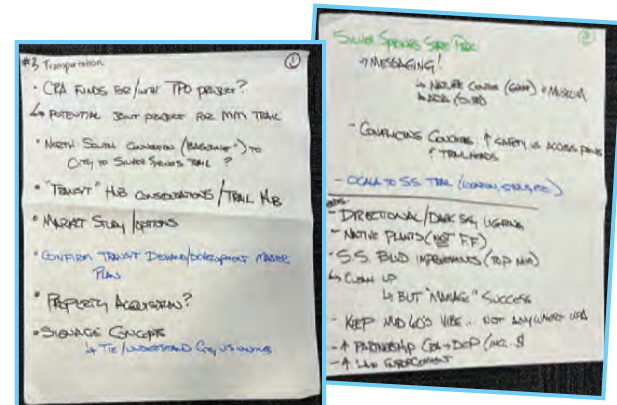 #3 Transportation
①
• CRA FUNDS FOR/WITH TPO PROJECT?
↳ POTENTIAL JOINT PROJECT FOR MM TRAIL
• NORTH SOUTH CONNECTION ("BASELINE") TO
CITY TO SILVER SPRINGS TRAIL ?
• "TRANSIT" HUB CONSIDERATIONS / TRAIL HUB
• MARKET STUDY/OPTIONS
• CONFIRM TRANSIT DEMAND/DEVELOPMENT MASTER
PLAN
• PROPERTY ACQUISITION?
• SIGNAGE CONCEPT
↳ TIE/UNDERSTAND CITY VS COUNTY
②
SILVER SPRINGS STATE PARK
→ MESSAGING!
↳ NATURE CENTER + MUSEUM
- CONFLICTING CONCERNS ↑ SAFETY VS ACCESS POINTS
↑ TRAILHEADS
- OCALA TO S.S. TRAIL
- DIRECTIONAL/DARK SKY LIGHTING
- NATIVE PLANTS (NOT F.F.)
- S.S. BLVD IMPROVEMENTS
↳ CLEAN UP
↳ BUT "MANAGE" SUCCESS
- KEEP MID 60'S VIBE.. NOT ANYWHERE USA
- ↑ PARTNERSHIP → DEP (INC. $)
- ↑ LAW ENFORCEMENT